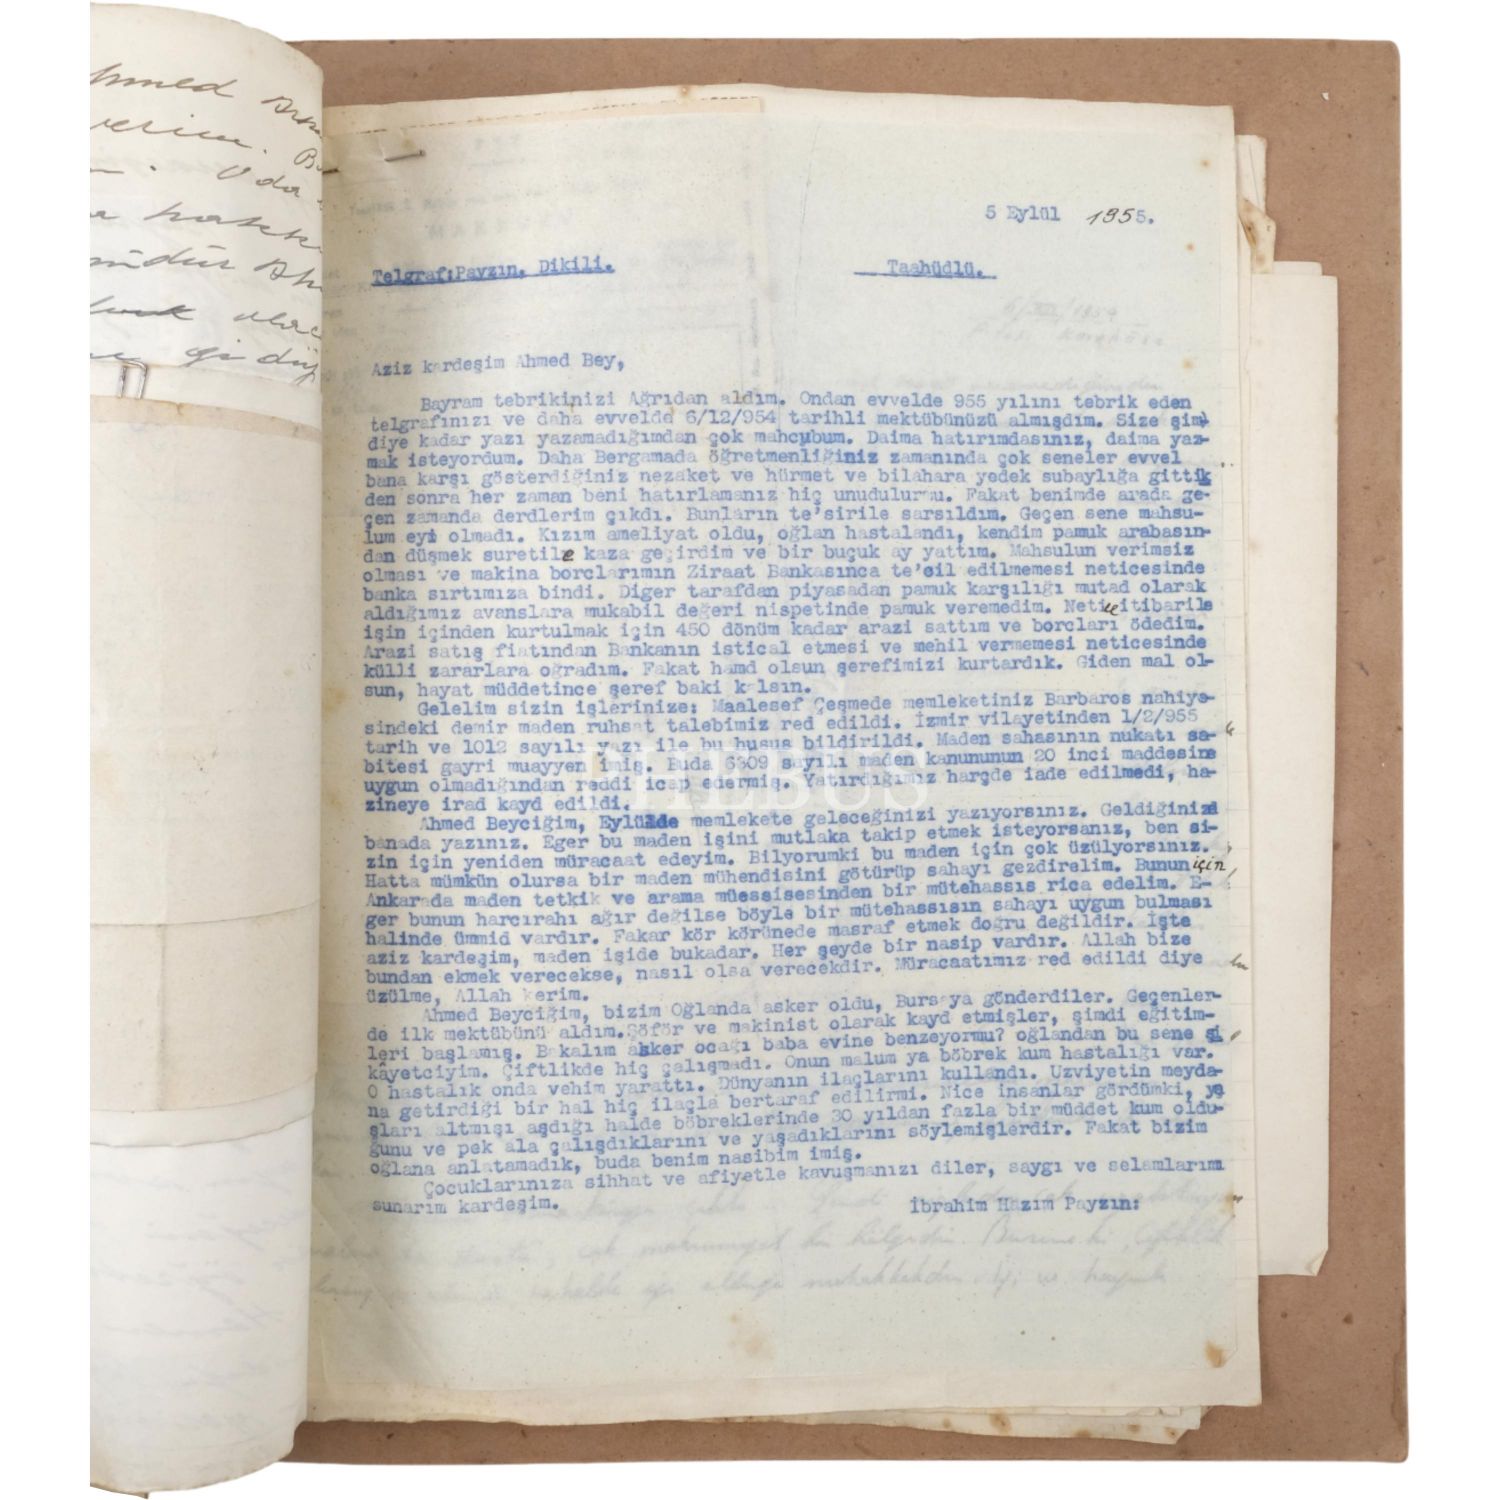 hmed
verim.
Oda
hakk
müdür
olac
5 Eylül 1955.
Telgraf:Payzın. Dikili.
Taahüdlü.
Aziz kardeşim Ahmed Bey,
Bayram tebrikinizi Ağrıdan aldım. Ondan evvelde 955 yılını tebrik eden
telgrafınızı ve daha evvelde 6/12/954 tarihli mektübünüzü almışdım. Size şim-
diye kadar yazı yazamadığımdan çok mahcubum. Daima hatırımdasınız, daima yaz-
mak isteyordum. Daha Bergamada öğretmenliğiniz zamanında çok seneler evvel
bana karşı gösterdiğiniz nezaket ve hürmet ve bilahara yedek subaylığa gittik
den sonra her zaman beni hatırlamanız hiç unudulurmu. Fakat benimde arada ge-
çen zamanda derdlerim çıkdı. Bunların te'sirile sarsıldım. Geçen sene mahsu-
lum eyi olmadı. Kızım ameliyat oldu, oğlan hastalandı, kendim pamuk arabasın-
dan düşmek suretile kaza geçirdim ve bir buçuk ay yattım. Mahsulun verimsiz
olması ve makina borclarımın Ziraat Bankasınca te'cil edilmemesi neticesinde
banka sırtımıza bindi. Diger tarafdan piyasadan pamuk karşılığı mutad olarak
aldığımız avanslara mukabil değeri nispetinde pamuk veremedim. Netice itibarile
işin içinden kurtulmak için 450 dönüm kadar arazi sattım ve borcları ödedim.
Arazi satış fiatından Bankanın istical etmesi ve mehil vermemesi neticesinde
külli zararlara oğradım. Fakat hamd olsun şerefimizi kurtardık. Giden mal ol-
sun, hayat müddetince şeref baki kalsın.
Gelelim sizin işlerinize: Maalesef Çeşmede memleketiniz Barbaros nahiye-
sindeki demir maden ruhsat talebimiz red edildi. İzmir vilayetinden 1/2/955
tarih ve 1012 sayılı yazı ile bu husus bildirildi. Maden sahasının nukatı sa-
bitesi gayri muayyen imiş. Buda 6309 sayılı maden kanununun 20 inci maddesine
uygun olmadığından reddi icap edermiş. Yatırdığımız harçde iade edilmedi, ha-
zineye irad kayd edildi.
PHEBUS
Ahmed Beyciğim, Eylülde memlekete geleceğinizi yazıyorsınız. Geldiğinizi
banada yazınız. Eger bu maden işini mutlaka takip etmek isteyorsanız, ben si-
zin için yeniden müracaat edeyim. Bilyorumki bu maden için çok üzülyorsınız.
Hatta mümkün olursa bir maden mühendisini götürüp sahayı gezdirelim. Bunun için
Ankarada maden tetkik ve arama müessisesinden bir mütehassıs rica edelim. E-
ger bunun harcırahı ağır değilse böyle bir mütehassısın sahayı uygun bulması
halinde ümmid vardır. Fakar kör körünede masraf etmek doğru değildir. İşte
aziz kardeşim, maden işide bukadar. Her şeyde bir nasip vardır. Allah bize
bundan ekmek verecekse, nasıl olsa verecekdir. Müracaatımız red edildi diye
üzülme, Allah kerim.
Ahmed Beyciğim, bizim Oğlanda asker oldu, Bursaya gönderdiler. Geçenler-
de ilk mektübünü aldım.Şöför ve makinist olarak kayd etmişler, şimdi eğitim-
leri başlamış. Bakalım asker ocağı baba evine benzeyormu? oğlandan bu sene şi
kâyetciyim. Çiftlikde hiç çalışmadı. Onun malum ya böbrek kum hastalığı var.
O hastalık onda vehim yarattı. Dünyanın ilaçlarını kullandı. Uzviyetin meyda-
na getirdiği bir hal hiç ilaçla bertaraf edilirmi. Nice insanlar gördümki, ya
şları altmışı aşdığı halde böbreklerinde 30 yıldan fazla bir müddet kum oldu-
ğunu ve pek ala çalışdıklarını ve yaşadıklarını söylemişlerdir. Fakat bizim
oğlana anlatamadık, buda benim nasibim imiş.
Çocuklarınıza sihhat ve afiyetle kavuşmanızı diler, saygı ve selamlarım
sunarım kardeşim.
İbrahim Hazım Payzın: